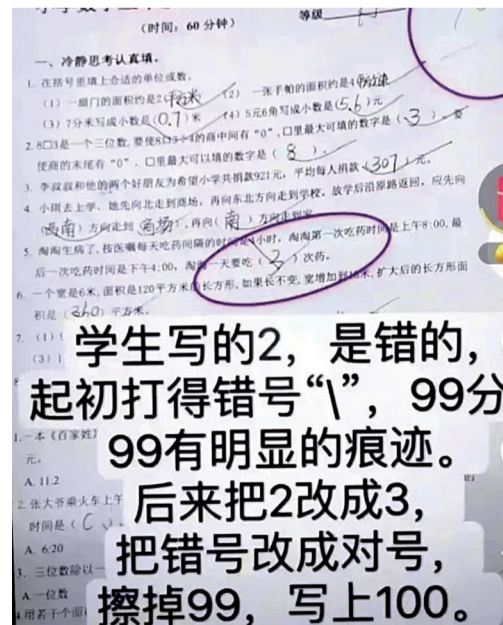 (时间：60 分钟)
等级
一、冷静思考认真填。
1. 在括号里填上合适的单位或数。
(1) 一扇门的面积约是2(平方米) (2) 一张手帕的面积约是4(平方分米
(3) 7分米写成小数是(0.7)米 (4) 5元6角写成小数是(5.6)元
2. 8□3是一个三位数,要使8□3÷4的商中间有“0”,口里最大可填的数字是(3),要
使商的末尾有“0”,口里最大可以填的数字是(8)。
3. 李叔叔和他的两个好朋友为希望小学共捐款921元,平均每人捐款(307)元。
4. 小琪去上学,她先向北走到商场,再向东北方向走到学校,放学后沿原路返回,应先向
(西南)方向走到(商场),再向(南)方向走到家
5. 淘淘生病了,按医嘱每天吃药间隔的时间是4小时,淘淘第一次吃药时间是上午8:00,最
后一次吃药时间是下午4:00,淘淘一天要吃(3)次药。
6. 一个宽是6米,面积是120平方米的长方形,如果长不变,宽增加到18米,扩大后的长方形面
积是(360)平方米。
7. (1)
(3)
学生写的2，是错的，
起初打得错号“\”，99分
99有明显的痕迹。
后来把2改成3，
把错号改成对号，
擦掉99，写上100。
1. 一本《百家姓》
元。
A. 11.2
2. 张大爷乘火车上午
时间是(C)。
A. 6:20
3. 三位数除以一
A. 一位数
4. 用若干个面